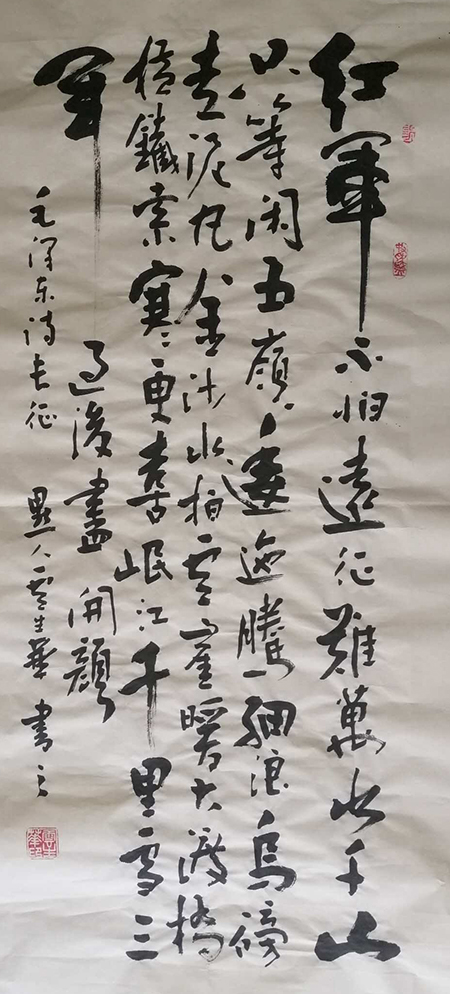 红軍不怕遠征難萬水千山
只等闲五嶺逶迤騰細浪烏磅
走泥丸金沙水拍雲崖暖大渡橋
横鐵索寒更喜岷江千里雪三
軍過後盡開顔
毛泽东诗長征 墨人雲生華書之